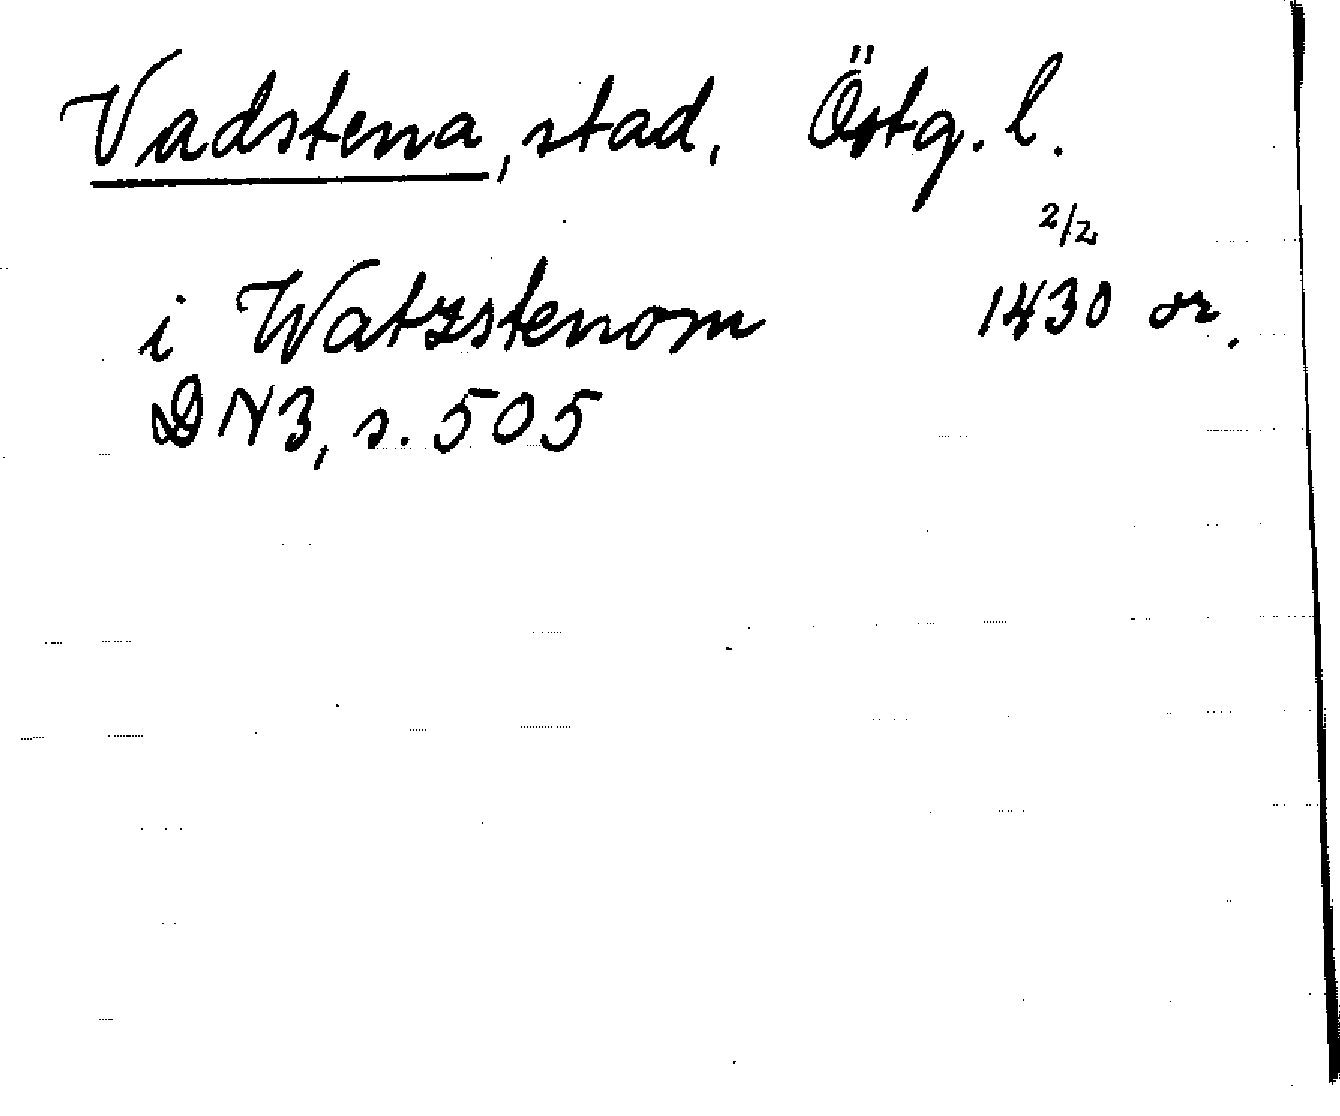 Vadstena, stad, Östg. l.
2/2
i Watzstenom 1430 or.
DN3, s. 505